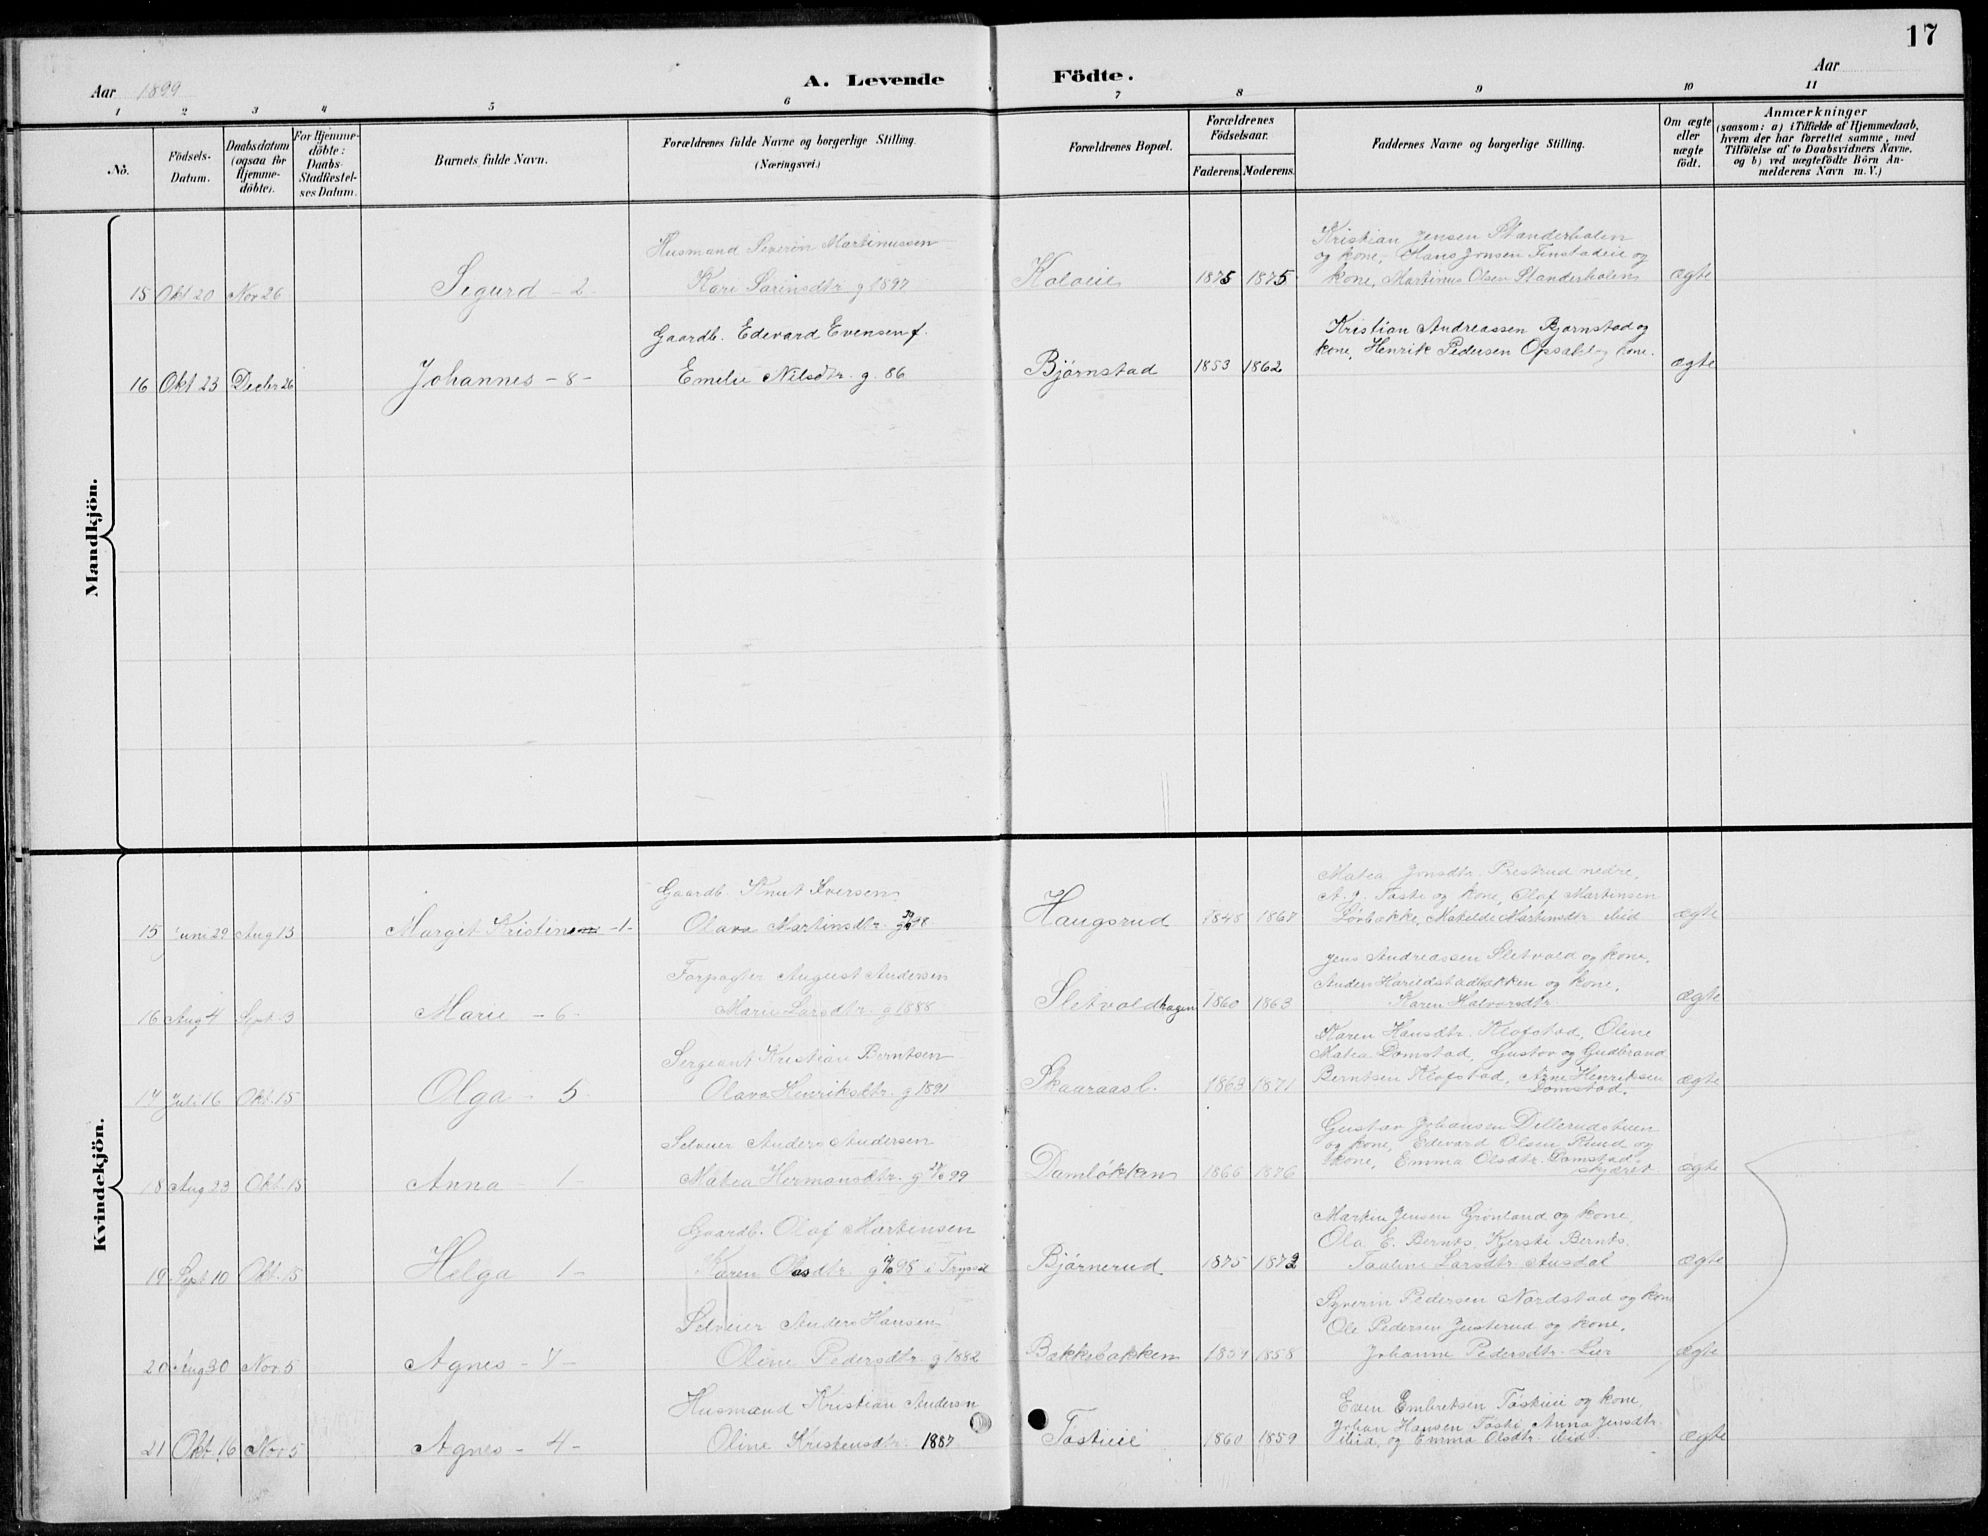 17
Aar 1899
A. Levende Födte.
Aar
1 2 3 4 5 6 7 8 9 10 11
No.
Födsels-Datum.
Daabsdatum (ogsaa for Hjemme-döbte).
For Hjemme-döbte: Daabs-Stadfestel-ses Datum.
Barnets fulde Navn.
Forældrenes fulde Navne og borgerlige Stilling.
(Næringsvei.)
Forældrenes Bopæl.
Forældrenes Födselsaar.
Faderens. Moderens.
Faddernes Navne og borgerlige Stilling.
Om ægte eller uægte födt.
Anmærkninger
(saasom: a) i Tilfælde af Hjemmedaab,
hvem der har forrettet samme, med
Tilföielse af to Daabsvidners Navne,
og b) ved uægtefödte Börn An-
melderens Navn m. V.)
Mandkjön.
Husmand Severin Martinussen
Kristian Jensen Standerholen
og kone, Hans Jonsen Finstadeie og
15 Okt 20 Nov 26 Sigurd - 2 - Kari Sørinsdtr g 1897 Koloeie 1875 1875 kone, Martinus Olsen Standerholen ægte
Gaardb. Edevard Evensen f.
Kristian Andreassen Bjørnstad og
kone, Henrik Pedersen Opsahl og kone.
16 Okt 23 Decbr 26 Johannes - 8 - Emelie Nilsdtr. g. 86 Bjørnstad 1853 1862 ægte
Kvindekjön.
Gaardb. Knut Iversen
Matea Jonsdtr. Prestrud nedre,
A. J. Tøste og kone, Olaf Martinsen
15 Juni 29 Aug 13 Margit Kristine - 1 - Olava Martinsdtr. Haugsrud 1848 1867 Lørbakke, Mathilde Martinsdtr ibid ægte
Forpagter August Andersen
Jens Andreassen Sletvold og kone,
Anders Harildstadbakken og kone,
16 Aug 4 Sept. 3 Marie - 6 - Marie Larsdtr. g 1888 Sletvoldhagen 1860 1863 Karen Halvorsdtr. ægte
Sergeant Kristian Berntsen
Karen Hansdtr. Klofstad, Oline
Matea Domstad, Gustav og Gudbrand
17 Juli 16 Okt. 15 Olga - 5 Olava Henriksdtr. g 1891 Skaaraasb. 1863 1871 Berntsen Klofstad, Arne Henriksen ægte
Domstad.
Selveier Anders Andersen
Gustav Johansen Dellerudstuen
og kone, Edevard Olsen Rund og
18 Aug 23 Okt. 15 Anna - 1 - Matea Hermansdtr. g 99 Damløkken 1866 1876 kone, Emma Olsdtr. Domstad- ægte
skjæret
Gaardb. Olaf Martinsen
Martin Jensen Grønland og kone,
Ola E. Bernts, Kjersti Bernts,
19 Sept 10 Okt. 15 Helga 1 - Karen Olasdtr g 98 i Trysil Bjørnerud 1875 1872 Pauline Larsdtr Ausdal ægte
Selveier Anders Hansen
Syverin Pedersen Nordstad og kone
Ole Pedersen Justerud og kone,
20 Aug 30 Nov 5 Agnes - 7 - Oline Pedersdtr. g 1882 Bækkebakken 1857 1858 Johanne Pedersdtr. Lier ægte
Husmand Kristian Andersn
Even Embretsen Tøsteie og kone,
Johan Hansen Tøste, Anna Jensdtr.
21 Okt. 16 Nov 5 Agnes - 4 - Oline Kristensdtr. 1887 Tøsteie 1860 1859 ibid, og Emma Olsdtr. ibid ægte